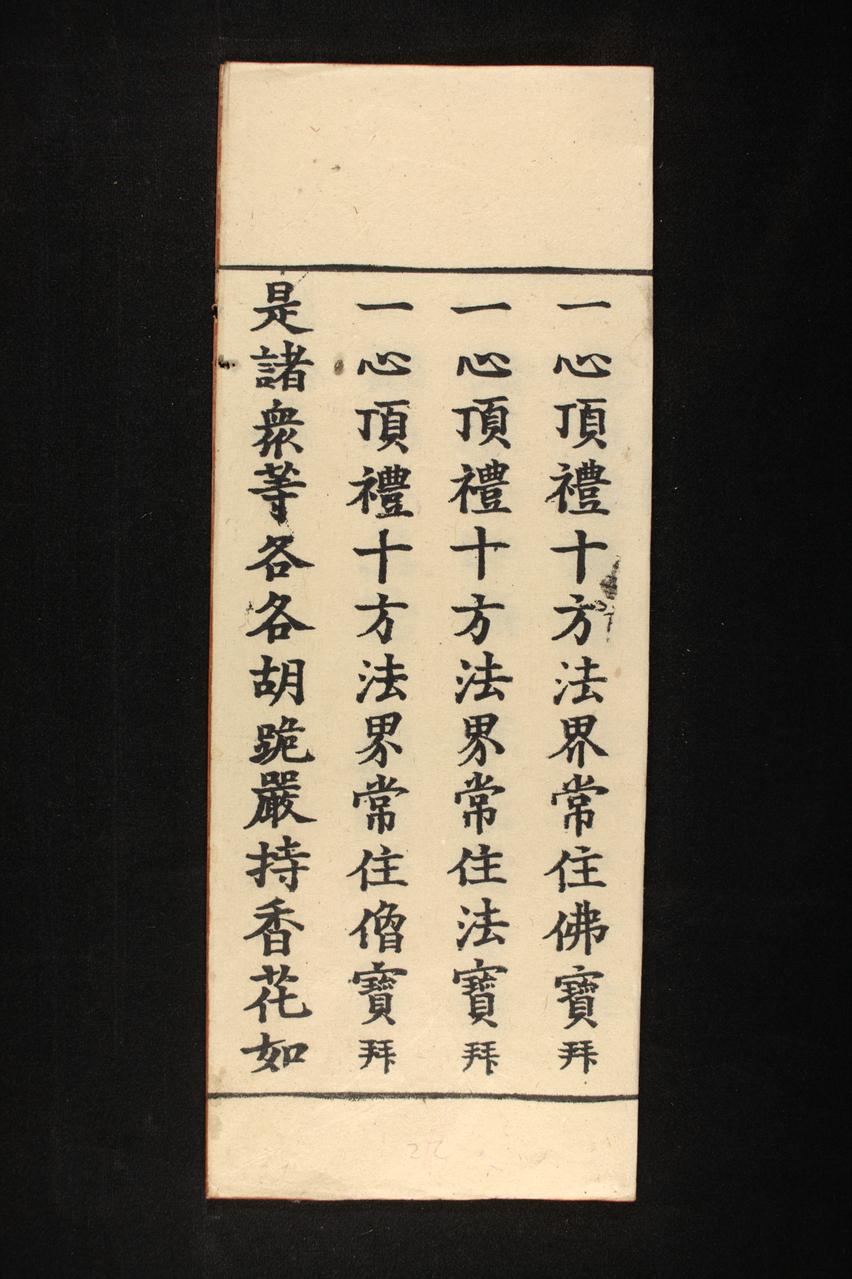 一心頂禮十方法界常住佛寶拜
一心頂禮十方法界常住法寶拜
一心頂禮十方法界常住僧寶拜
是諸衆等各各胡跪嚴持香花如
22